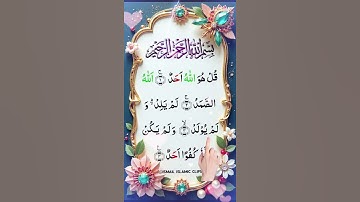 بِسْمِ اللهِ الرَّحْمٰنِ الرَّحِيْمِ
قُلْ هُوَ اللّٰهُ اَحَدٌ ۝١ اَللّٰهُ
الصَّمَدُ ۝٢ لَمْ يَلِدْ ۙ وَ
لَمْ يُوْلَدْ ۝٣ وَلَمْ يَكُنْ
كُفُوًا اَحَدٌ ۝٤
ISLAMIC CLIPS